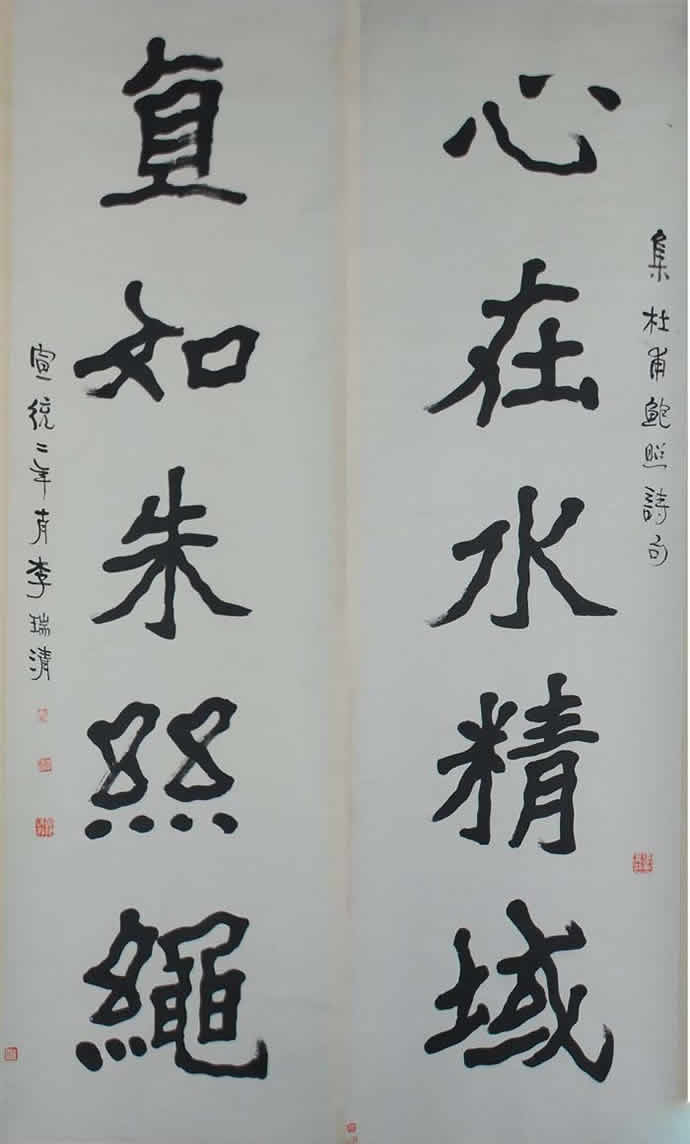 集杜甫鮑照詩句
心在水精域
直如朱絲繩
宣統二年李瑞清